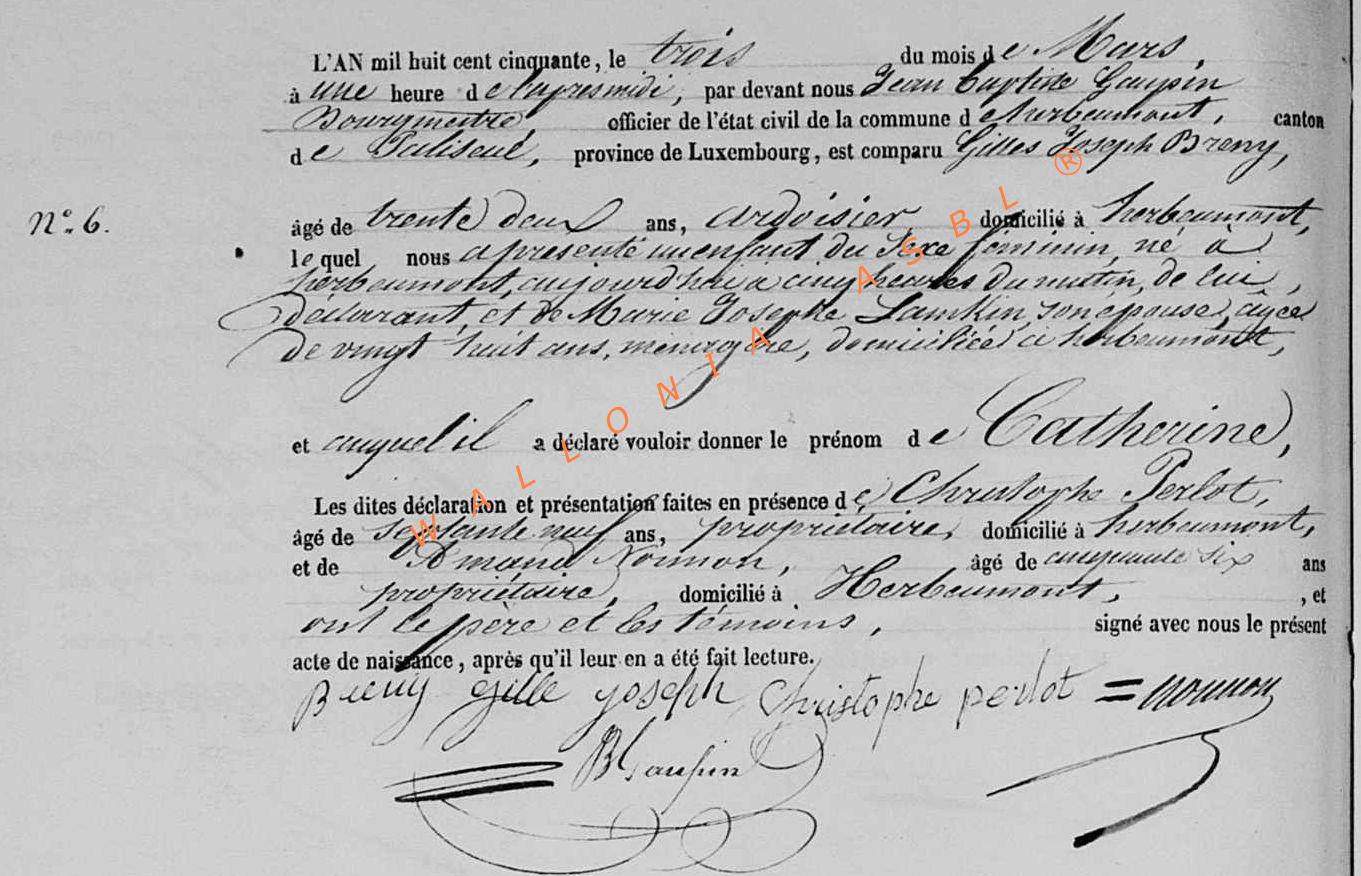 L'AN mil huit cent cinquante, le trois du mois de Mars,
à une heure de lapresmidi, par devant nous Jean Baptiste Gaupin
Bourgmestre, officier de l'état civil de la commune d'herbeumont, canton
de Paliseul, province de Luxembourg, est comparu Gilles Joseph Breny,
N.° 6.
âgé de trente deux ans, ardoisier, domicilié à herbeumont,
lequel nous a présenté un enfant du Sexe féminin, né à
herbeumont, aujourd'hui a cinq heures du matin, de lui,
déclarant, et de Marie Josephe Lamkin, son épouse, âgée
de vingt huit ans, menagère, domiciliée à herbeumont,
et auquel il a déclaré vouloir donner le prénom de Catherine,
Les dites déclaration et présentation faites en présence de Christophe Perlot,
âgé de septante neuf ans, propriétaire, domicilié à herbeumont,
et de Amand Nonnon, âgé de cinquante six ans
propriétaire, domicilié à Herbeumont, , et
ont le père et les témoins, signé avec nous le présent
acte de naissance, après qu'il leur en a été fait lecture.
Breny gille joseph Christophe perlot = nonnon
WALLONIA ASBL ®